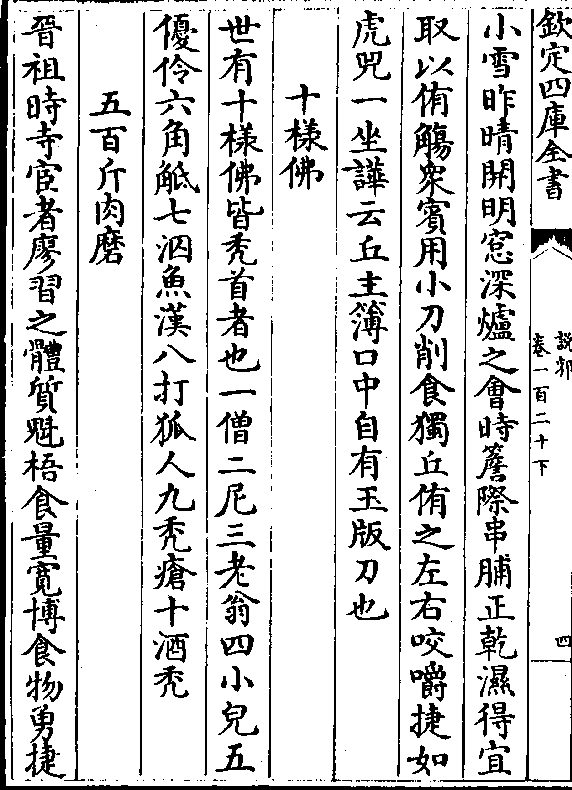 欽定四庫全書
說郛
卷一百二十下
四
小雪昨晴開明窻深爐之會時簷際串脯正乾濕得宜
取以侑觴衆賓用小刀削食獨丘侑之左右咬嚼捷如
虎兕一坐譁云丘主簿口中自有玉版刀也
十樣佛
世有十樣佛皆禿首者也一僧二尼三老翁四小兒五
優伶六角觝七泅魚漢八打狐人九禿瘡十酒禿
五百斤肉磨
晉祖時寺宦者廖習之體質魁梧食量寛博食物勇捷